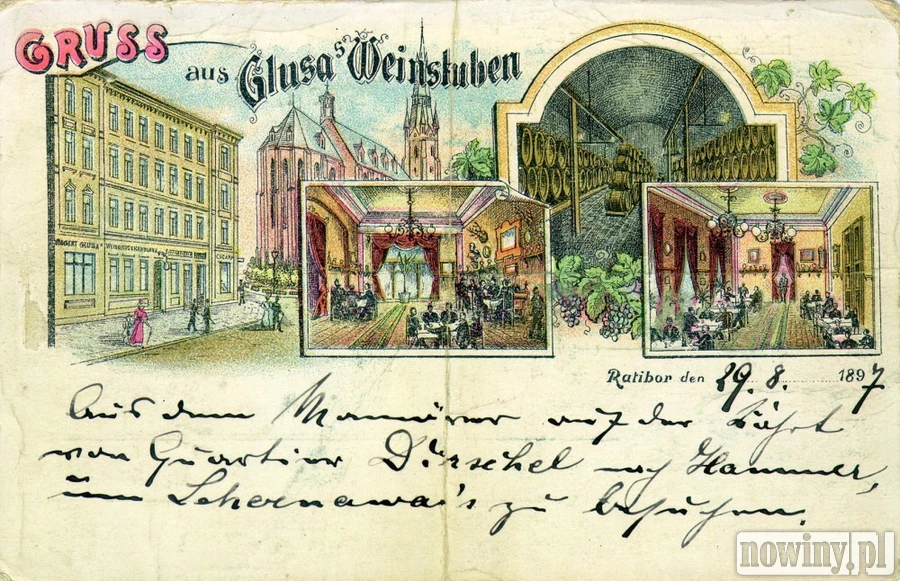 GRUSS
aus Glusa's Weinstuben
ROBERT GLUSA'S WEINGROSSHANDLUNG
Ratibor den 29. 8. 1897
Aus dem Manöver auf der Fahrt
von Quartier Dirschel nach Hammer,
um Schernawa's zu besuchen.
nowiny.pl